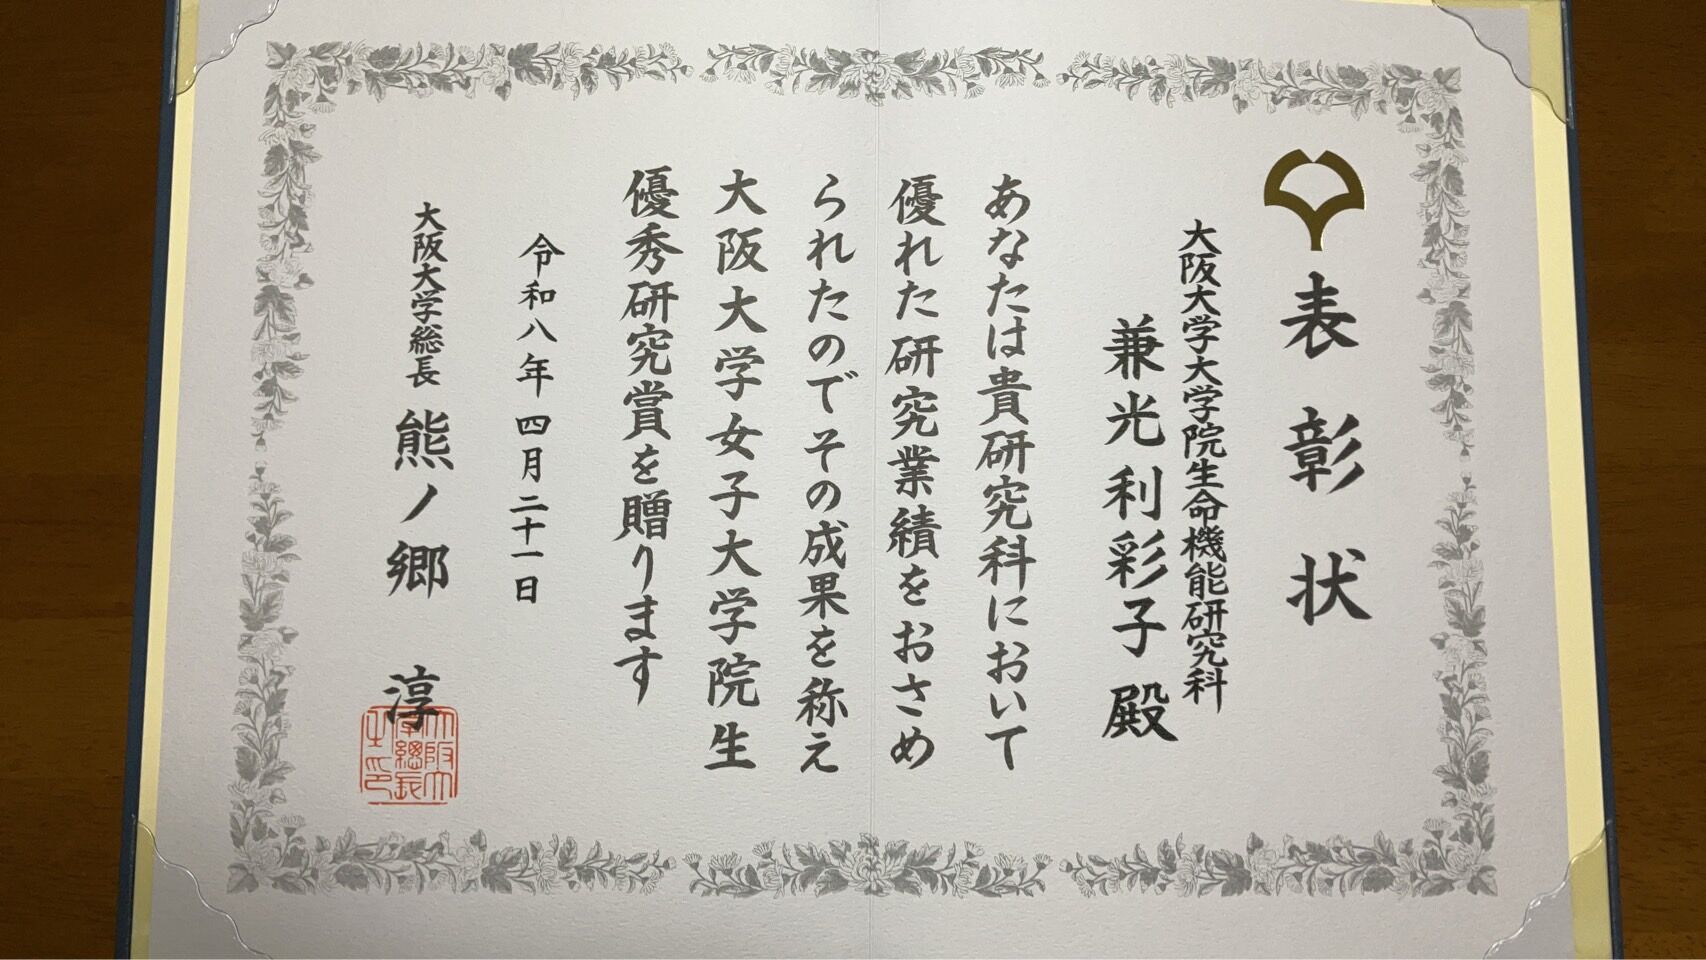 表彰状
大阪大学大学院生命機能研究科
兼光利彩子殿
あなたは貴研究科において
優れた研究業績をおさめ
られたのでその成果を称え
大阪大学女子大学院生
優秀研究賞を贈ります
令和八年四月二十一日
大阪大学総長 熊ノ郷 淳
大阪大
学總長
之印